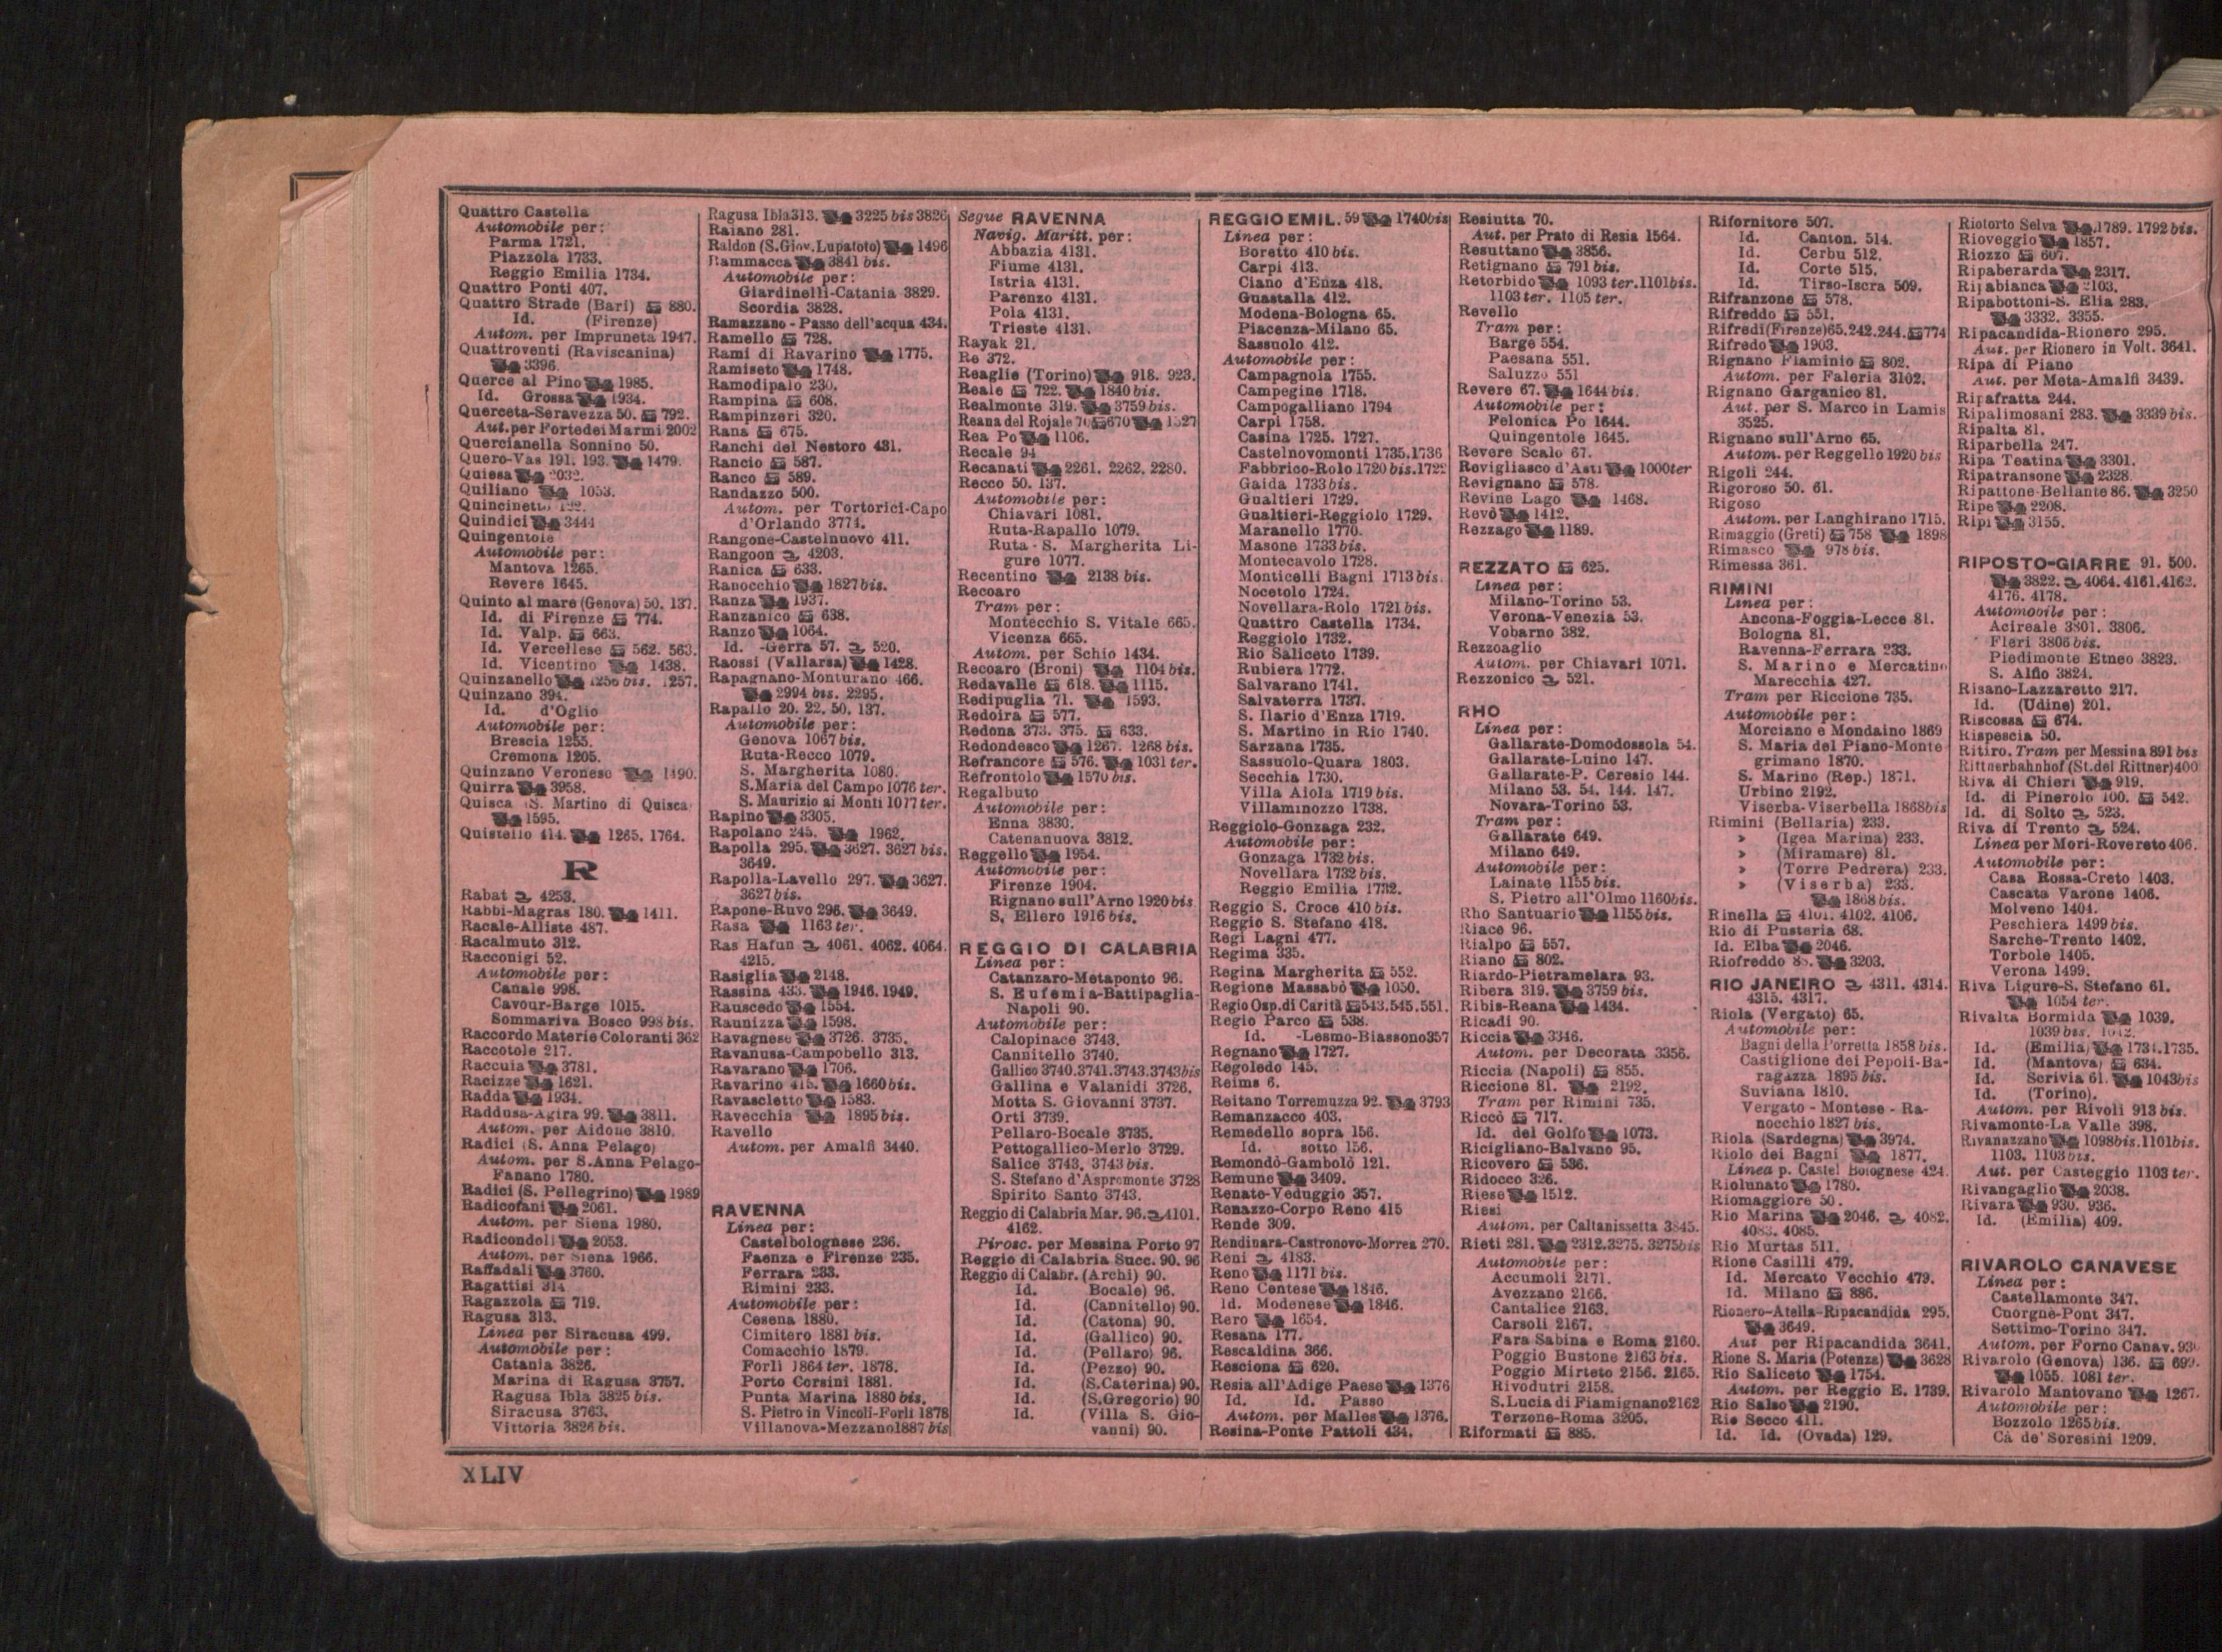 Quattro Castella
Automobile per:
Parma 1721.
Piazzola 1733.
Reggio Emilia 1734.
Quattro Ponti 407.
Quattro Strade (Bari) 880.
Id. (Firenze)
Autom. per Impruneta 1947.
Quattroventi (Raviscanina)
3396.
Querce al Pino 1985.
Id. Grossa 1934.
Querceta-Seravezza 50. 792.
Aut. per Forte dei Marmi 2002
Quercianella Sonnino 50.
Quero-Vas 191. 193. 1479.
Quiesa 2032.
Quiliano 1053.
Quincinetto
Quindici 3444
Quingentole
Automobile per:
Mantova 1265.
Revere 1645.
Quinto al mare (Genova) 50. 137.
Id. di Firenze 774.
Id. Valp. 663.
Id. Vercellese 562. 563.
Id. Vicentino 1438.
Quinzanello 1256 bis. 1257.
Quinzano 394.
Id. d'Oglio
Automobile per:
Brescia 1255.
Cremona 1205.
Quinzano Veronese 1490.
Quirra 3958.
Quisca (S. Martino di Quisca
1595.
Quistello 414. 1265. 1764.
R
Rabat 4253.
Rabbi-Magras 180. 1411.
Racale-Alliste 487.
Racalmuto 312.
Racconigi 52.
Automobile per:
Canale 998.
Cavour-Barge 1015.
Sommariva Bosco 998 bis.
Raccordo Materie Coloranti 362
Raccotole 217.
Raccuia 3781.
Racizze 1621.
Radda 1934.
Raddusa-Agira 99. 3811.
Autom. per Aidone 3810.
Radici (S. Anna Pelago)
Autom. per S. Anna Pelago-
Fanano 1780.
Radici (S. Pellegrino) 1989
Radicofani 2061.
Autom. per Siena 1980.
Radicondoli 2053.
Autom. per Siena 1966.
Raffadali 3760.
Ragattisi 314
Ragazzola 719.
Ragusa 313.
Linea per Siracusa 499.
Automobile per:
Catania 3826.
Marina di Ragusa 3757.
Ragusa Ibla 3825 bis.
Siracusa 3763.
Vittoria 3826 bis.
Ragusa Ibla 313. 3225 bis 3826
Raiano 281.
Raldon (S. Giov. Lupatoto) 1496
Rammacca 3841 bis.
Automobile per:
Giardinelli-Catania 3829.
Scordia 3828.
Ramazzano - Passo dell'acqua 434.
Ramello 728.
Rami di Ravarino 1775.
Ramiseto 1748.
Ramodipalo 230.
Rampina 608.
Rampinzeri 320.
Rana 675.
Ranchi del Nestoro 431.
Rancio 587.
Ranco 589.
Randazzo 500.
Autom. per Tortorici-Capo
d'Orlando 3774.
Rangone-Castelnuovo 411.
Rangoon 4203.
Ranica 633.
Ranocchio 1827 bis.
Ranza 1937.
Ranzanico 638.
Ranzo 1064.
Id. -Gerra 57. 520.
Raossi (Vallarsa) 1428.
Rapagnano-Monturano 466.
2994 bis. 2295.
Rapallo 20. 22. 50. 137.
Automobile per:
Genova 1067 bis.
Ruta-Recco 1079.
S. Margherita 1080.
S. Maria del Campo 1076 ter.
S. Maurizio ai Monti 1077 ter.
Rapino 3305.
Rapolano 245. 1962.
Rapolla 295. 3627. 3627 bis.
3649.
Rapolla-Lavello 297. 3627.
3627 bis.
Rapone-Ruvo 296. 3649.
Rasa 1163 ter.
Ras Hafun 4061. 4062. 4064.
4215.
Rasiglia 2148.
Rassina 433. 1946. 1949.
Rauscedo 1554.
Raunizza 1598.
Ravagnese 3726. 3735.
Ravanusa-Campobello 313.
Ravarano 1706.
Ravarino 415. 1660 bis.
Ravascletto 1583.
Ravecchia 1895 bis.
Ravello
Autom. per Amalfi 3440.
RAVENNA
Linea per:
Castelbolognese 236.
Faenza e Firenze 235.
Ferrara 233.
Rimini 233.
Automobile per:
Cesena 1880.
Cimitero 1881 bis.
Comacchio 1879.
Forlì 1864 ter. 1878.
Porto Corsini 1881.
Punta Marina 1880 bis.
S. Pietro in Vincoli-Forlì 1878
Villanova-Mezzano 1887 bis
Segue RAVENNA
Navig. Maritt. per:
Abbazia 4131.
Fiume 4131.
Istria 4131.
Parenzo 4131.
Pola 4131.
Trieste 4131.
Rayak 21.
Re 372.
Reaglie (Torino) 918. 923.
Reale 722. 1840 bis.
Realmonte 319. 3759 bis.
Reana del Rojale 70 670 1527
Rea Po 1106.
Recale 94
Recanati 2261. 2262. 2280.
Recco 50. 137.
Automobile per:
Chiavari 1081.
Ruta-Rapallo 1079.
Ruta - S. Margherita Li-
gure 1077.
Recentino 2138 bis.
Recoaro
Tram per:
Montecchio S. Vitale 665.
Vicenza 665.
Autom. per Schio 1434.
Recoaro (Broni) 1104 bis.
Redavalle 618. 1115.
Redipuglia 71. 1593.
Redoira 577.
Redona 373. 375. 633.
Redondesco 1267. 1268 bis.
Refrancore 576. 1031 ter.
Refrontolo 1570 bis.
Regalbuto
Automobile per:
Enna 3830.
Catenanuova 3812.
Reggello 1954.
Automobile per:
Firenze 1904.
Rignano sull'Arno 1920 bis
S. Ellero 1916 bis.
REGGIO DI CALABRIA
Linea per:
Catanzaro-Metaponto 96.
S. Eufemia-Battipaglia-
Napoli 90.
Automobile per:
Calopinace 3743.
Cannitello 3740.
Gallico 3740.3741.3743.3743 bis
Gallina e Valanidi 3726.
Motta S. Giovanni 3737.
Orti 3739.
Pellaro-Bocale 3735.
Pettogallico-Merlo 3729.
Salice 3743. 3743 bis.
S. Stefano d'Aspromonte 3728
Spirito Santo 3743.
Reggio di Calabria Mar. 96. 4101.
4162.
Pirosc. per Messina Porto 97
Reggio di Calabria Succ. 90. 96
Reggio di Calabr. (Archi) 90.
Id. Bocale) 96.
Id. (Cannitello) 90.
Id. (Catona) 90.
Id. (Gallico) 90.
Id. (Pellaro) 96.
Id. (Pezzo) 90.
Id. (S. Caterina) 90.
Id. (S. Gregorio) 90
Id. (Villa S. Gio-
vanni) 90.
REGGIO EMIL. 59 1740 bis
Linea per:
Boretto 410 bis.
Carpi 413.
Ciano d'Enza 418.
Guastalla 412.
Modena-Bologna 65.
Piacenza-Milano 65.
Sassuolo 412.
Automobile per:
Campagnola 1755.
Campegine 1718.
Campogalliano 1794
Carpi 1758.
Casina 1725. 1727.
Castelnovomonti 1735.1736
Fabbrico-Rolo 1720 bis.1722
Gaida 1733 bis.
Gualtieri 1729.
Gualtieri-Reggiolo 1729.
Maranello 1770.
Masone 1733 bis.
Montecavolo 1728.
Monticelli Bagni 1713 bis.
Nocetolo 1724.
Novellara-Rolo 1721 bis.
Quattro Castella 1734.
Reggiolo 1732.
Rio Saliceto 1739.
Rubiera 1772.
Salvarano 1741.
Salvaterra 1737.
S. Ilario d'Enza 1719.
S. Martino in Rio 1740.
Sarzana 1735.
Sassuolo-Quara 1803.
Secchia 1730.
Villa Aiola 1719 bis.
Villaminozzo 1738.
Reggiolo-Gonzaga 232.
Automobile per:
Gonzaga 1732 bis.
Novellara 1732 bis.
Reggio Emilia 1732.
Reggio S. Croce 410 bis.
Reggio S. Stefano 418.
Regi Lagni 477.
Regima 335.
Regina Margherita 552.
Regione Massabò 1050.
Regio Osp. di Carità 543.545.551.
Regio Parco 538.
Id. -Lesmo-Biassono 357
Regnano 1727.
Regoledo 145.
Reims 6.
Reitano Torremuzza 92. 3793
Remanzacco 403.
Remedello sopra 156.
Id. sotto 156.
Remondò-Gambolò 121.
Remune 3409.
Renate-Veduggio 357.
Renazzo-Corpo Reno 415
Rende 309.
Rendinara-Castronovo-Morrea 270.
Reni 4183.
Reno 1171 bis.
Reno Centese 1846.
Id. Modenese 1846.
Rero 1654.
Resana 177.
Rescaldina 366.
Resciona 620.
Resia all'Adige Paese 1376
Id. Id. Passo
Autom. per Malles 1376.
Resina-Ponte Pattoli 434.
Resiutta 70.
Aut. per Prato di Resia 1564.
Resuttano 3856.
Retignano 791 bis.
Retorbido 1093 ter.1101 bis.
1103 ter. 1105 ter.
Revello
Tram per:
Barge 554.
Paesana 551.
Saluzzo 551
Revere 67. 1644 bis.
Automobile per:
Felonica Po 1644.
Quingentole 1645.
Revere Scalo 67.
Revigliasco d'Asti 1000 ter
Revignano 578.
Revine Lago 1468.
Revò 1412.
Rezzago 1189.
REZZATO 625.
Linea per:
Milano-Torino 53.
Verona-Venezia 53.
Vobarno 382.
Rezzoaglio
Autom. per Chiavari 1071.
Rezzonico 521.
RHO
Linea per:
Gallarate-Domodossola 54.
Gallarate-Luino 147.
Gallarate-P. Ceresio 144.
Milano 53. 54. 144. 147.
Novara-Torino 53.
Tram per:
Gallarate 649.
Milano 649.
Automobile per:
Lainate 1155 bis.
S. Pietro all'Olmo 1160 bis.
Rho Santuario 1155 bis.
Riace 96.
Rialpo 557.
Riano 802.
Riardo-Pietramelara 93.
Ribera 319. 3759 bis.
Ribis-Reana 1434.
Ricadi 90.
Riccia 3346.
Autom. per Decorata 3356.
Riccia (Napoli) 855.
Riccione 81. 2192.
Tram per Rimini 735.
Riccò 717.
Id. del Golfo 1073.
Ricigliano-Balvano 95.
Ricovero 536.
Ridocco 326.
Riese 1512.
Riesi
Autom. per Caltanissetta 3845.
Rieti 281. 2312.3275. 3275 bis
Automobile per:
Accumoli 2171.
Avezzano 2166.
Cantalice 2163.
Carsoli 2167.
Fara Sabina e Roma 2160.
Poggio Bustone 2163 bis.
Poggio Mirteto 2156. 2165.
Rivodutri 2158.
S. Lucia di Fiamignano 2162
Terzone-Roma 3205.
Riformati 885.
Rifornitore 507.
Id. Canton. 514.
Id. Cerbu 512.
Id. Corte 515.
Id. Tirso-Iscra 509.
Rifranzone 578.
Rifreddo 551.
Rifredi (Firenze) 65.242.244. 774
Rifredo 1903.
Rignano Flaminio 802.
Autom. per Faleria 3102.
Rignano Garganico 81.
Aut. per S. Marco in Lamis
3525.
Rignano sull'Arno 65.
Autom. per Reggello 1920 bis
Rigoli 244.
Rigoroso 50. 61.
Rigoso
Autom. per Langhirano 1715.
Rimaggio (Greti) 758 1898
Rimasco 978 bis.
Rimessa 361.
RIMINI
Linea per:
Ancona-Foggia-Lecce 81.
Bologna 81.
Ravenna-Ferrara 233.
S. Marino e Mercatino
Marecchia 427.
Tram per Riccione 735.
Automobile per:
Morciano e Mondaino 1869
S. Maria del Piano-Monte
grimano 1870.
S. Marino (Rep.) 1871.
Urbino 2192.
Viserba-Viserbella 1868 bis
Rimini (Bellaria) 233.
» (Igea Marina) 233.
» (Miramare) 81.
» (Torre Pedrera) 233.
» (Viserba) 233.
1868 bis.
Rinella 4101. 4102. 4106.
Rio di Pusteria 68.
Id. Elba 2046.
Riofreddo 85. 3203.
RIO JANEIRO 4311. 4314.
4315. 4317.
Riola (Vergato) 65.
Automobile per:
Bagni della Porretta 1858 bis.
Castiglione dei Pepoli-Ba-
ragazza 1895 bis.
Suviana 1810.
Vergato - Montese - Ra-
nocchio 1827 bis.
Riola (Sardegna) 3974.
Riolo dei Bagni 1877.
Linea p. Castel Bolognese 424.
Riolunato 1780.
Riomaggiore 50.
Rio Marina 2046. 4082.
4083. 4085.
Rio Murtas 511.
Rione Casilli 479.
Id. Mercato Vecchio 479.
Id. Milano 886.
Rionero-Atella-Ripacandida 295.
3649.
Aut per Ripacandida 3641.
Rione S. Maria (Potenza) 3628
Rio Saliceto 1754.
Autom. per Reggio E. 1739.
Rio Salso 2190.
Rio Secco 411.
Id. Id. (Ovada) 129.
Riotorto Selva 1789. 1792 bis.
Rioveggio 1857.
Riozzo 607.
Ripaberarda 2317.
Ripabianca 2103.
Ripabottoni-S. Elia 283.
3332. 3355.
Ripacandida-Rionero 295.
Aut. per Rionero in Volt. 3641.
Ripa di Piano
Aut. per Meta-Amalfi 3439.
Ripafratta 244.
Ripalimosani 283. 3339 bis.
Ripalta 81.
Riparbella 247.
Ripa Teatina 3301.
Ripatransone 2328
Ripattone-Bellante 86. 3250
Ripe 2208.
Ripi 3155.
RIPOSTO-GIARRE 91. 500.
3822. 4064. 4161.4162.
4176. 4178.
Automobile per:
Acireale 3801. 3806.
Fleri 3806 bis.
Piedimonte Etneo 3823.
S. Alfio 3824.
Risano-Lazzaretto 217.
Id. (Udine) 201.
Riscossa 674.
Rispescia 50.
Ritiro. Tram per Messina 891 bis
Rittnerbahnhof (St. del Rittner) 400
Riva di Chieri 919.
Id. di Pinerolo 100. 542.
Id. di Solto 523.
Riva di Trento 524.
Linea per Mori-Rovereto 406.
Automobile per:
Casa Rossa-Creto 1403.
Cascata Varone 1406.
Molveno 1404.
Peschiera 1499 bis.
Sarche-Trento 1402.
Torbole 1405.
Verona 1499.
Riva Ligure-S. Stefano 61.
1054 ter.
Rivalta Bormida 1039.
1039 bis. 1042.
Id. (Emilia) 1731.1735.
Id. (Mantova) 634.
Id. Scrivia 61. 1043 bis
Id. (Torino).
Autom. per Rivoli 913 bis.
Rivamonte-La Valle 398.
Rivanazzano 1098 bis.1101 bis.
1103. 1103 bis.
Aut. per Casteggio 1103 ter.
Rivangaglio 2038.
Rivara 930. 936.
Id. (Emilia) 409.
RIVAROLO CANAVESE
Linea per:
Castellamonte 347.
Cuorgnè-Pont 347.
Settimo-Torino 347.
Autom. per Forno Canav.
Rivarolo (Genova) 136. 699.
1055. 1081 ter.
Rivarolo Mantovano 1267.
Automobile per:
Bozzolo 1265 bis.
Cà de' Soresini 1209.
XLIV